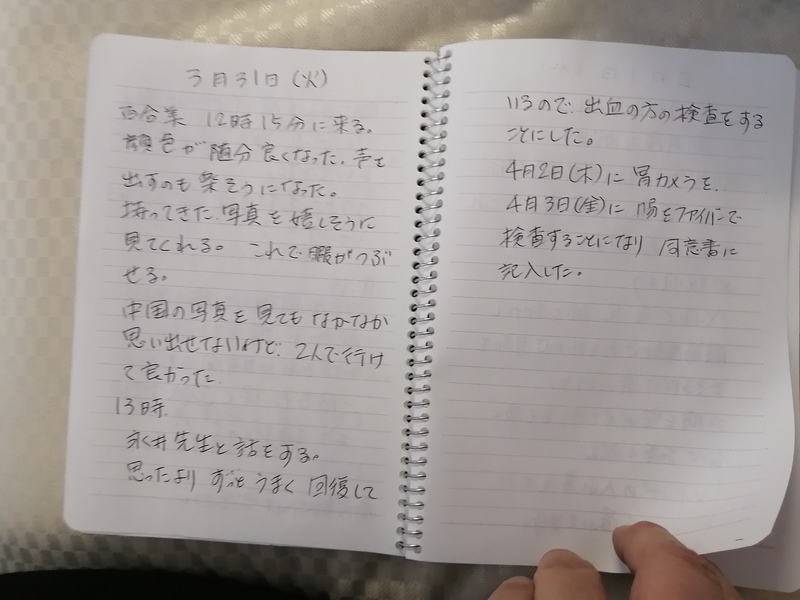 3月31日(火)
百合業 12時15分に来る。
顔色が随分良くなった。声を
出すのも楽そうになった。
持ってきた写真を嬉しそうに
見てくれる。 これで暇がつぶ
せる。
中国の写真を見てもなかなか
思い出せないけど、2人で行け
て良かった
13時
永井先生と話をする。
思ったよりずっとうまく回復して
いるので、出血の方の検査をする
ことにした。
4月2日(木)に胃カメラを、
4月3日(金)に腸をファイバーで
検査することになり 同意書に
記入した。